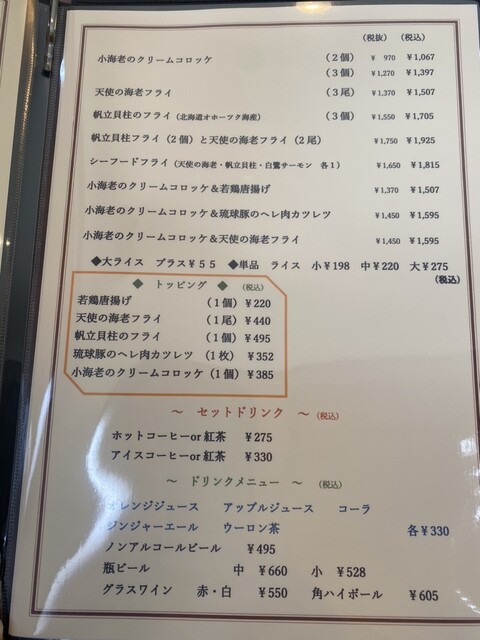 (税抜) (税込)
小海老のクリームコロッケ (2個) ¥ 970 ¥1,067
(3個) ¥1,270 ¥1,397
天使の海老フライ (3尾) ¥1,370 ¥1,507
帆立貝柱のフライ(北海道オホーツク海産) (3個) ¥1,550 ¥1,705
帆立貝柱フライ(2個)と天使の海老フライ(2尾) ¥1,750 ¥1,925
シーフードフライ(天使の海老・帆立貝柱・白鷺サーモン 各1) ¥1,650 ¥1,815
小海老のクリームコロッケ&若鶏唐揚げ ¥1,370 ¥1,507
小海老のクリームコロッケ&琉球豚のヘレ肉カツレツ ¥1,450 ¥1,595
小海老のクリームコロッケ&天使の海老フライ ¥1,450 ¥1,595
◆大ライス プラス¥55 ◆単品 ライス 小¥198 中¥220 大¥275
(税込)
◆ トッピング ◆ (税込)
若鶏唐揚げ (1個)¥220
天使の海老フライ (1尾)¥440
帆立貝柱のフライ (1個)¥495
琉球豚のヘレ肉カツレツ (1枚)¥352
小海老のクリームコロッケ(1個)¥385
~ セットドリンク ~(税込)
ホットコーヒーor紅茶 ¥275
アイスコーヒーor紅茶 ¥330
~ ドリンクメニュー ~ (税込)
オレンジジュース アップルジュース コーラ
ジンジャーエール ウーロン茶 各¥330
ノンアルコールビール ¥495
瓶ビール 中 ¥660 小 ¥528
グラスワイン 赤・白 ¥550 角ハイボール ¥605